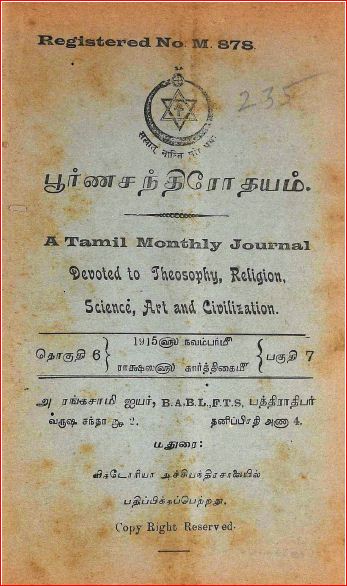 Registered No. M. 878.
235
பூர்ணசந்திரோதயம்.
A Tamil Monthly Journal
Devoted to Theosophy, Religion,
Science, Art and Civilization.
தொகுதி 6 } 1915௵ நவம்பர்௴ { பகுதி 7
ராக்ஷஸ௵ கார்த்திகை௴
அ ரங்கசாமி ஐயர், B.A.B.L., F.T.S, பத்திராதிபர்
வருஷ சந்தா ரூ 2. தனிப்பிரதி அணா 4.
மதுரை:
விக்டோரியா அச்சியந்திரசாலையில்
பதிப்பிக்கப்பெற்றது.
Copy Right Reserved.